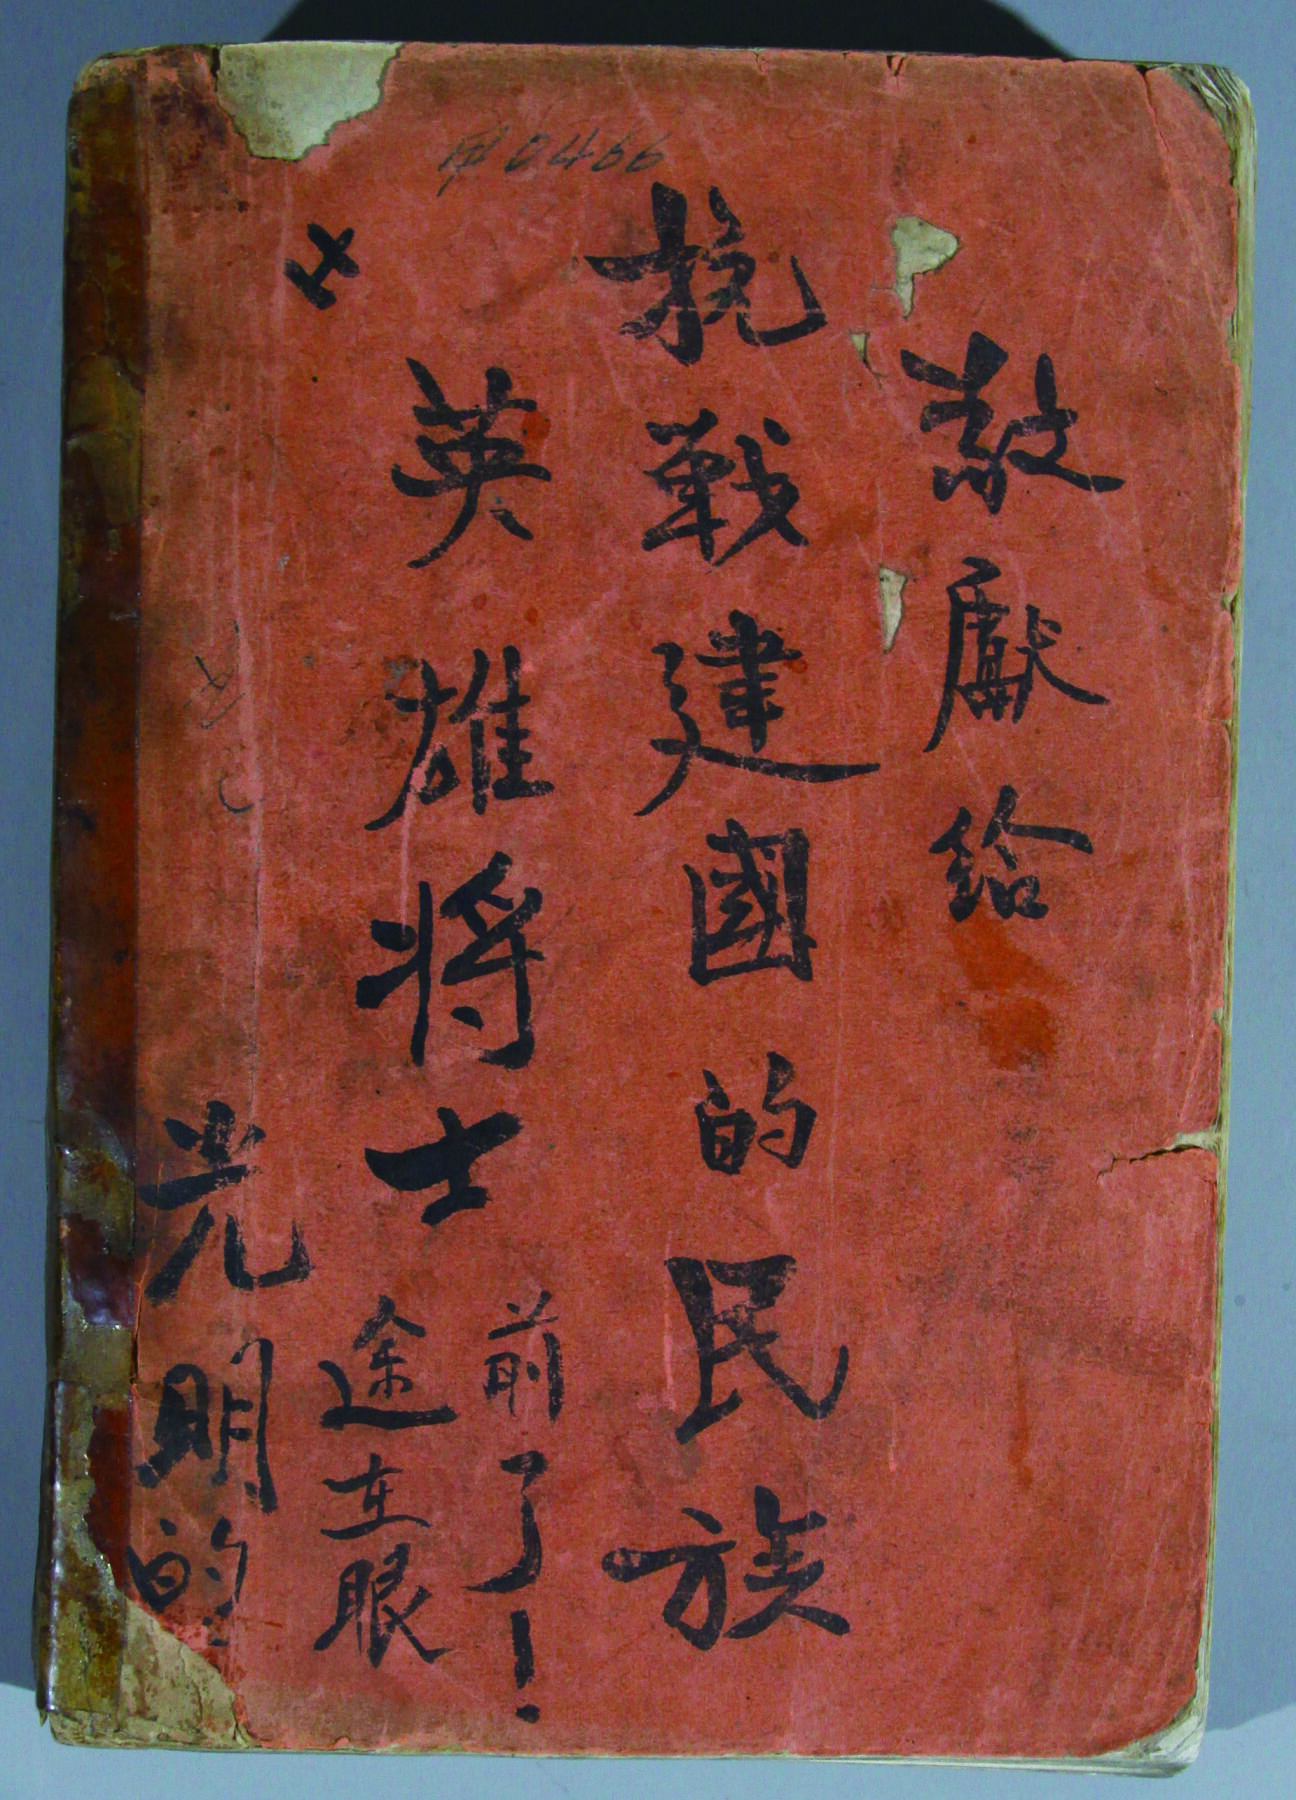 甲0466
敬獻給
抗戰建國的民族
英雄将士
光明的
途在眼
前了！